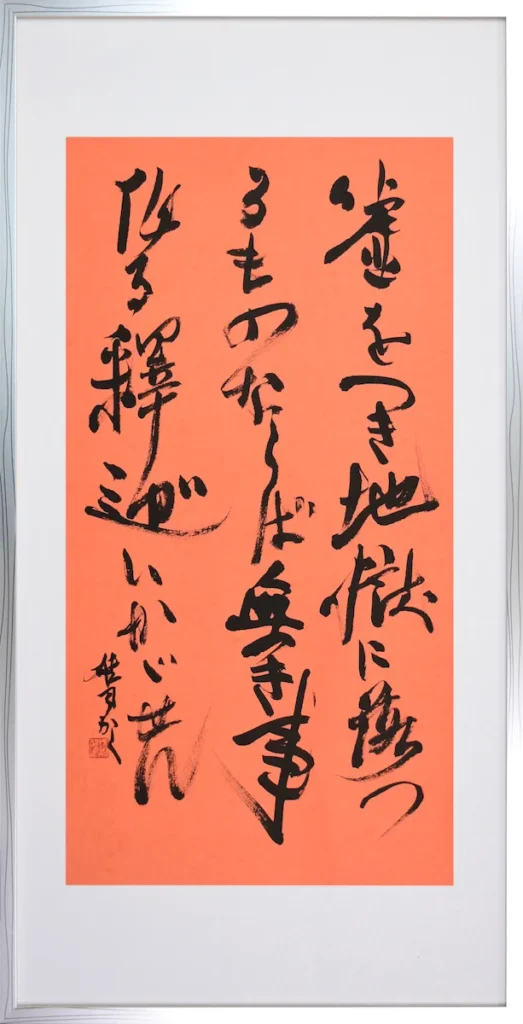 嘘をつき地獄に落つ
るものならば無き事
作る釋迦いかゞせん
かく